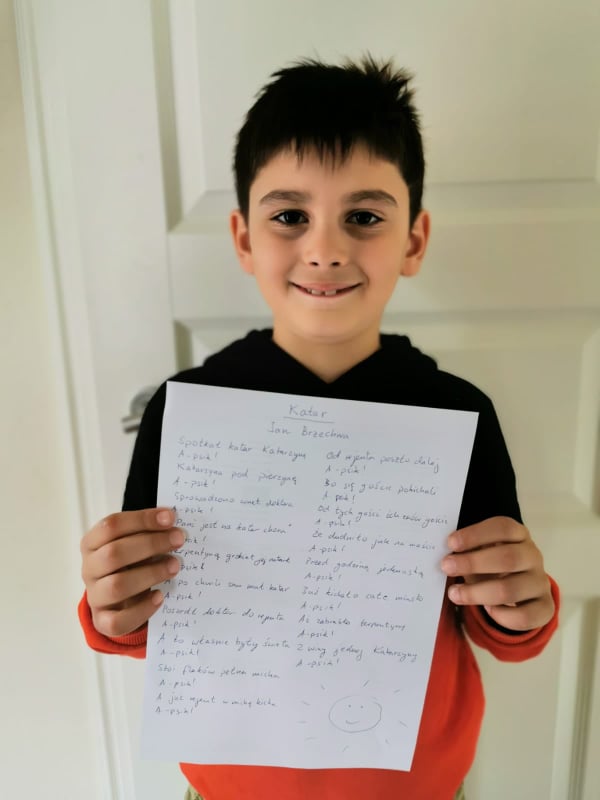 Katar
Jan Brzechwa
Spotkał katar Katarzynę
A-psik!
Katarzyna pod pierzynę
A-psik!
Sprowadzono wnet doktora
A-psik!
Pani jest na katar chora"
psik!
gębę jej natarł
psik!
A po chwili sam miał katar
A-psik!
Poszedł doktor do rejenta
A-psik!
A to właśnie były święta
A-psik!
Stoi flaków pełna micha
A-psik!
A już rejent w michę kicha
A-psik!
Od rejenta poszło dalej
A-psik!
Bo się goście pokichali
A psik!
Od tych gości ich goście
A-psik!
Że dudniło jak na moście
A-psik!
Przed godziną jedenastą
A-psik!
Już kichało całe miasto
A-psik!
Aż zabrakło terpentyny
A-psik!
Z winy jednej Katarzyny
A-psik!